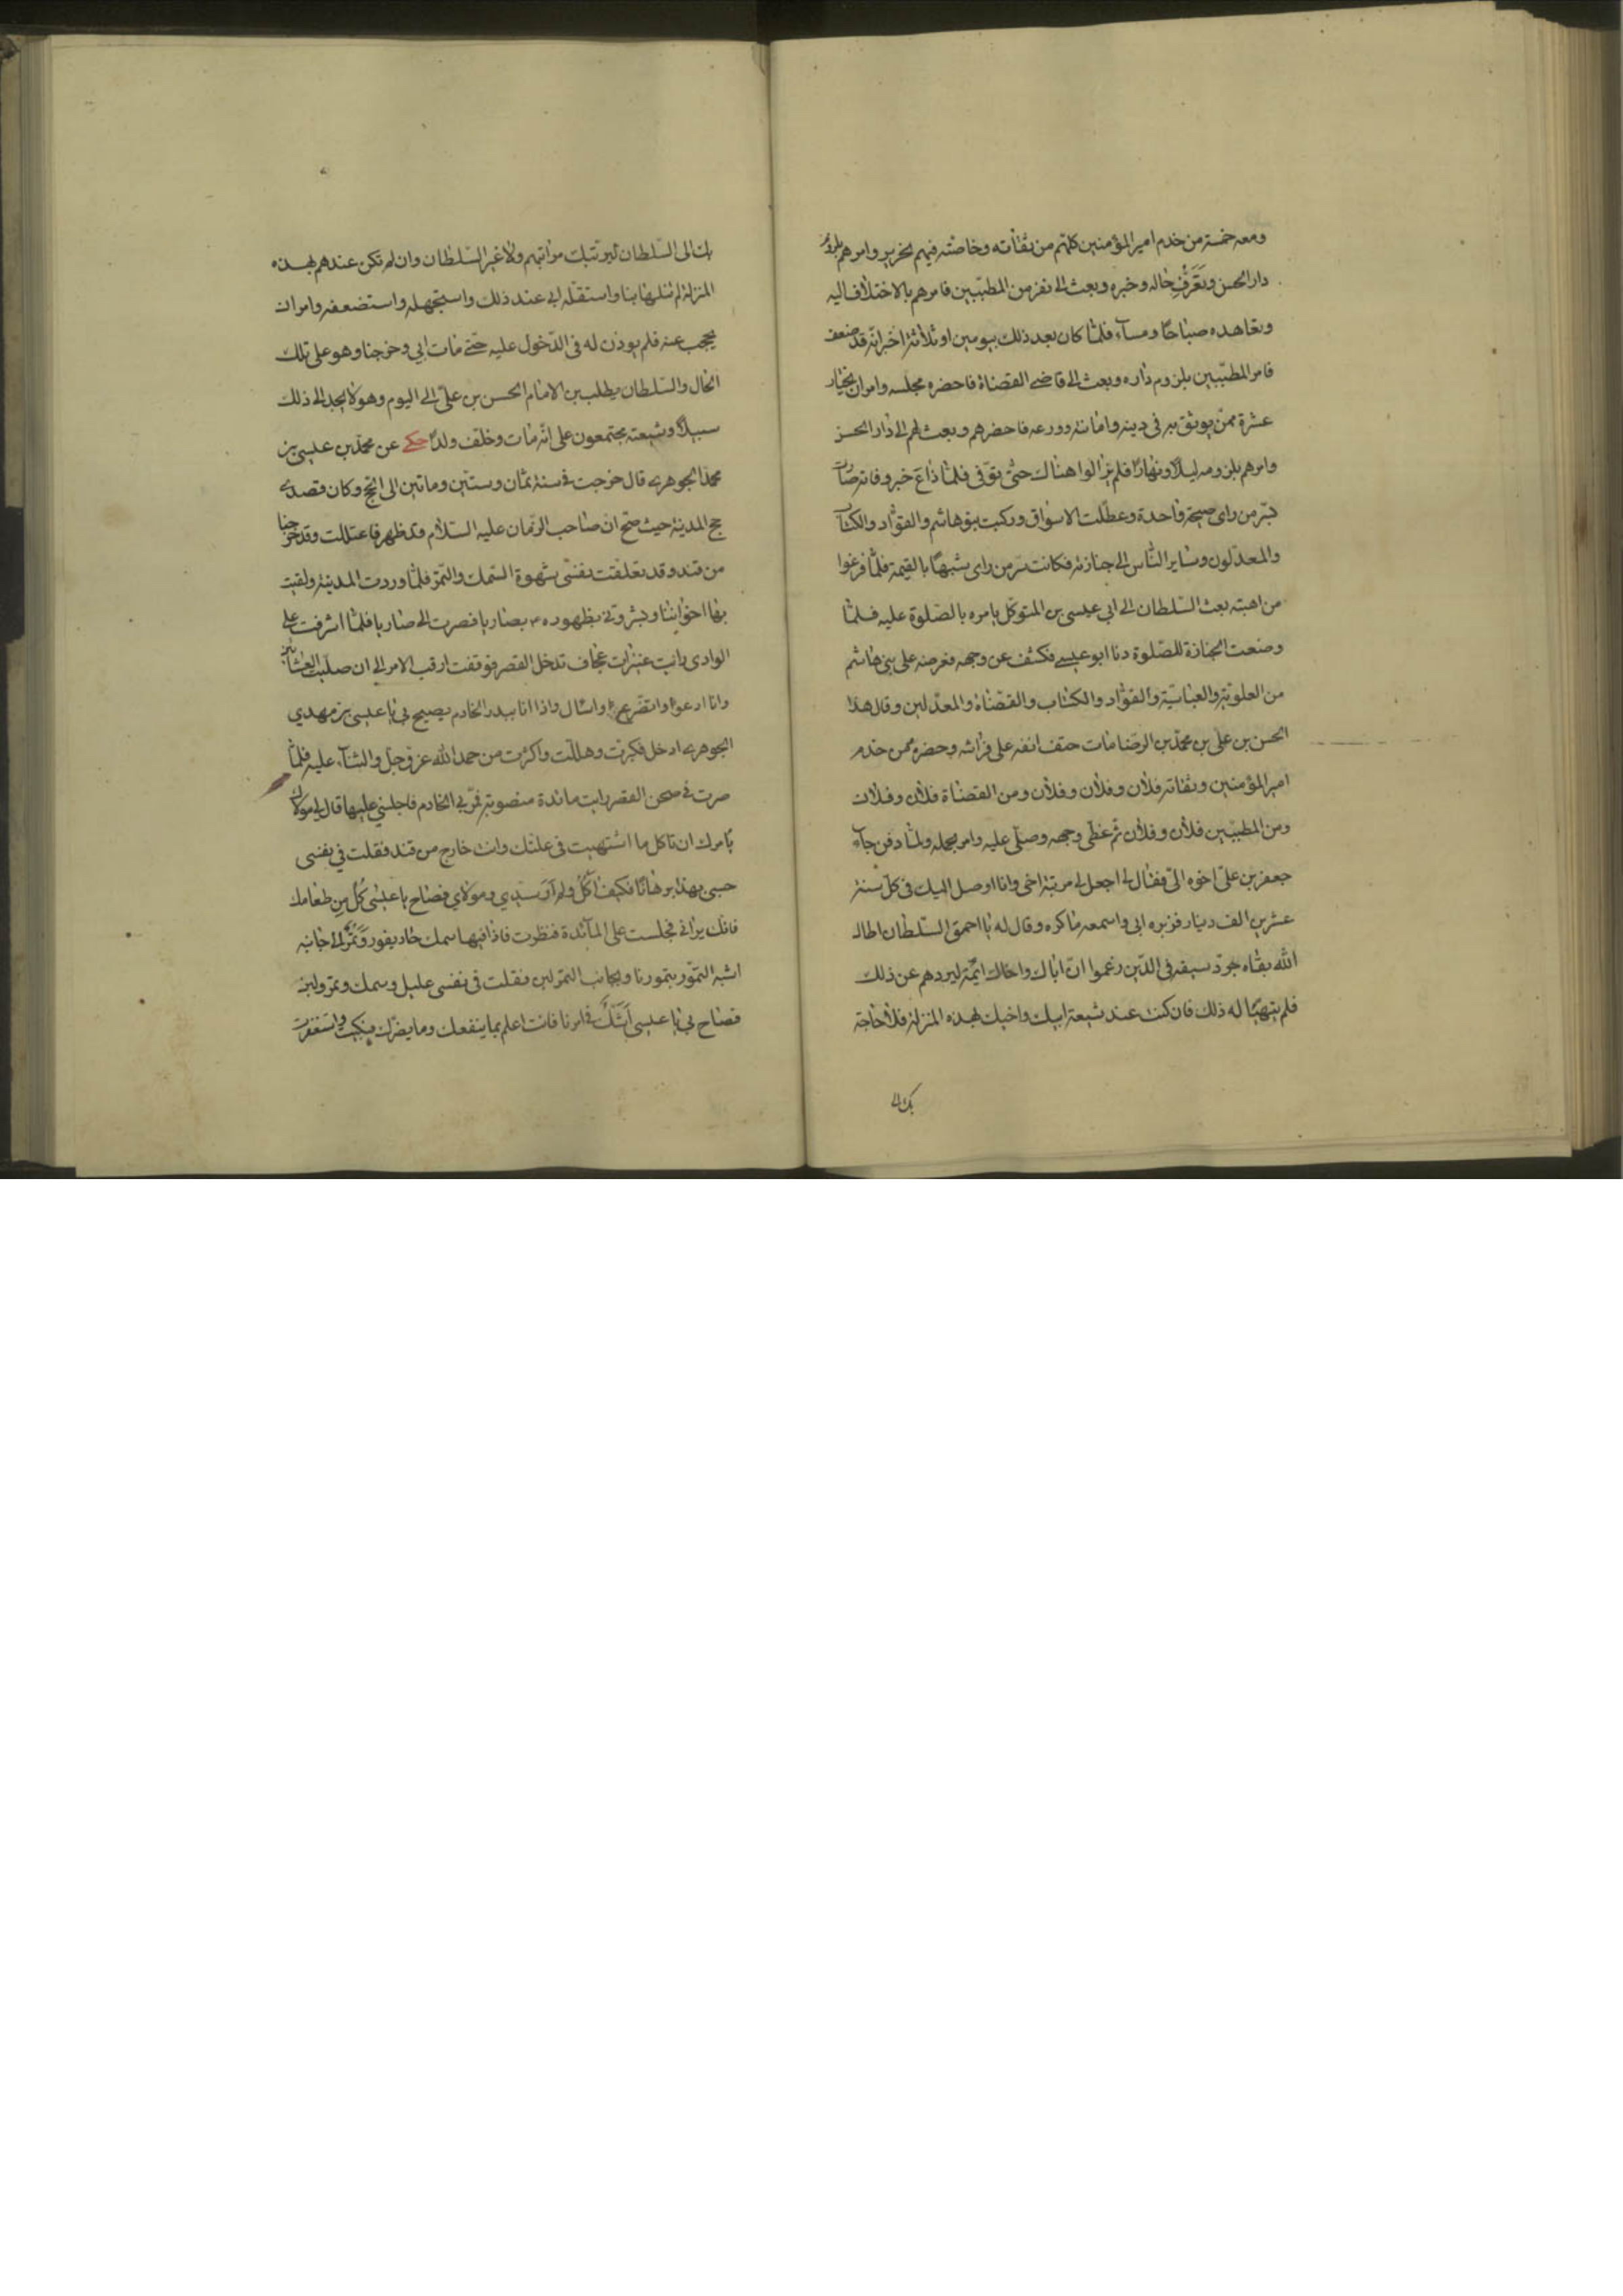 ومعه خمسة من خدم امير المؤمنين كلهم من ثقاته وخاصته فيهم نحرير وامرهم بلزوم
دار الحسن وتعرّف حاله وخبره وبعث الى نفر من المطببين فامرهم بالاختلاف اليه
وتعاهده صباحا ومساء فلما كان بعد ذلك بيومين او ثلاثة اخبر انه قد ضعف
فامر المطببين بلزوم داره وبعث الى قاضى القضاة فاحضره مجلسه وامر ان يختار
عشرة ممن يوثق به فى دينه وامانته وورعه فاحضرهم وبعث لهم الى دار الحسن
وامرهم بلزومه ليلا ونهارا فلم يزالوا هناك حتى توفى فلما ذاع خبر وفاته صارت
سر من راى صيحة واحدة وعطلت الاسواق وركبت بنو هاشم والقواد والكتاب
والمعدلون وساير الناس الى جنازته فكانت سر من راى شبيها بالقيمة فلما فرغوا
من اهبته بعث السلطان الى ابى عيسى بن المتوكل يامره بالصلوة عليه فلما
وضعت الجنازة للصلوة دنا ابو عيسى فكشف عن وجهه فعرضه على بنى هاشم
من العلوية والعباسية والقواد والكتاب والقضاة والمعدلين وقال هذا
الحسن بن على بن محمد بن الرضا مات حتف انفه على فراشه وحضره ممن خدم
امير المؤمنين وثقاته فلان وفلان وفلان ومن القضاة فلان وفلان
ومن المطببين فلان وفلان ثم غطى وجهه وصلى عليه وامر بحمله ولما دفن جاء
جعفر بن على اخوه الى فقال لى اجعل لى مرتبة اخى وانا اوصل اليك فى كل سنة
عشرين الف دينار فزبره ابى واسمعه ما كره وقال له يا احمق السلطان اطال
الله بقاه جرد سيفه فى الذين زعموا ان اباك واخاك ائمة ليردهم عن ذلك
فلم يتهيا له ذلك فان كنت عند شيعة ابيك واخيك بهذه المنزلة فلا حاجة
بك الى
بك الى السلطان ليرتبك مراتبهم ولا غير السلطان وان لم تكن عندهم بهذه
المنزلة لم تنلها بنا واستقله ابى عند ذلك واستجهله واستضعفه وامر ان
يحجب عنه فلم يوذن له فى الدخول عليه حتى مات ابى وخرجنا وهو على تلك
الحال والسلطان يطلب بن الامام الحسن بن على الى اليوم وهو لا يجد الى ذلك
سبيلا وشيعته مجتمعون على انه مات وخلف ولدا حكى عن محمد بن عيسى بن
محمد الجوهرى قال خرجت فى سنة ثمان وستين وماتين الى الحج وكان قصدى
حج المدينة حيث صح ان صاحب الزمان عليه السلام قد ظهر فاعتللت وقد خرجنا
من قند وقد تعلقت نفسى بشهوة السمك والتمر فلما وردت المدينة ولقيت
بها اخواننا وبشرونى بظهوره بصاريا فصرت الى صاريا فلما اشرفت على
الوادى رايت عنيزات عجاف تدخل القصر فوقفت ارقب الامر الى ان صليت العشائين
وانا ادعوا واتضرع واسال واذا انا ببدر الخادم يصيح بى يا عيسى بن مهدي
الجوهرى ادخل فكبرت وهللت واكثرت من حمد الله عز وجل والثناء عليه فلما
صرت فى صحن القصر رايت مائدة منصوبة فمر بى الخادم فاجلسني عليها قال لى مولاك
يامرك ان تاكل ما اشتهيت فى علتك وانت خارج من قند فقلت في نفسى
حسبى بهذا برهانا فكيف اكل ولم ار سيدي ومولاي فصاح يا عيسى كل من طعامك
فانك يرانى فجلست على المآئدة فنظرت فاذا فيها سمك حار يفور وتمر الى جانبه
اشبه التمور بتمورنا وبجانب التمر لبن فقلت فى نفسى عليل وسمك وتمر ولبن
فصاح بى يا عيسى اتشك فى امرنا فانت اعلم بما ينفعك وما يضرك فبكيت واستغفرت